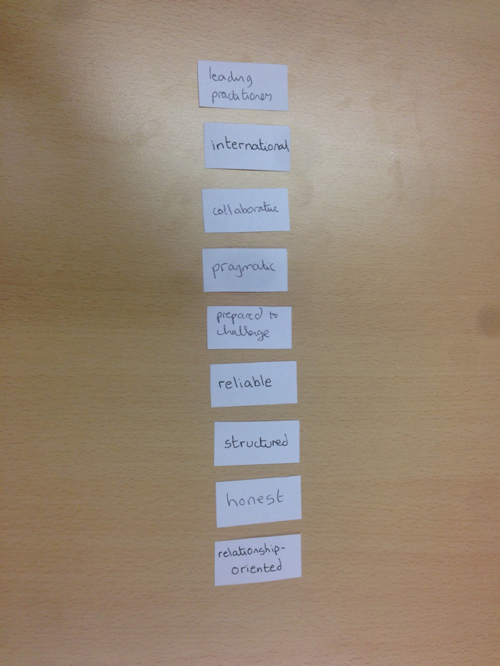 leading
practitioners
international
collaborative
pragmatic
prepared to
challenge
reliable
structured
honest
relationship-
oriented